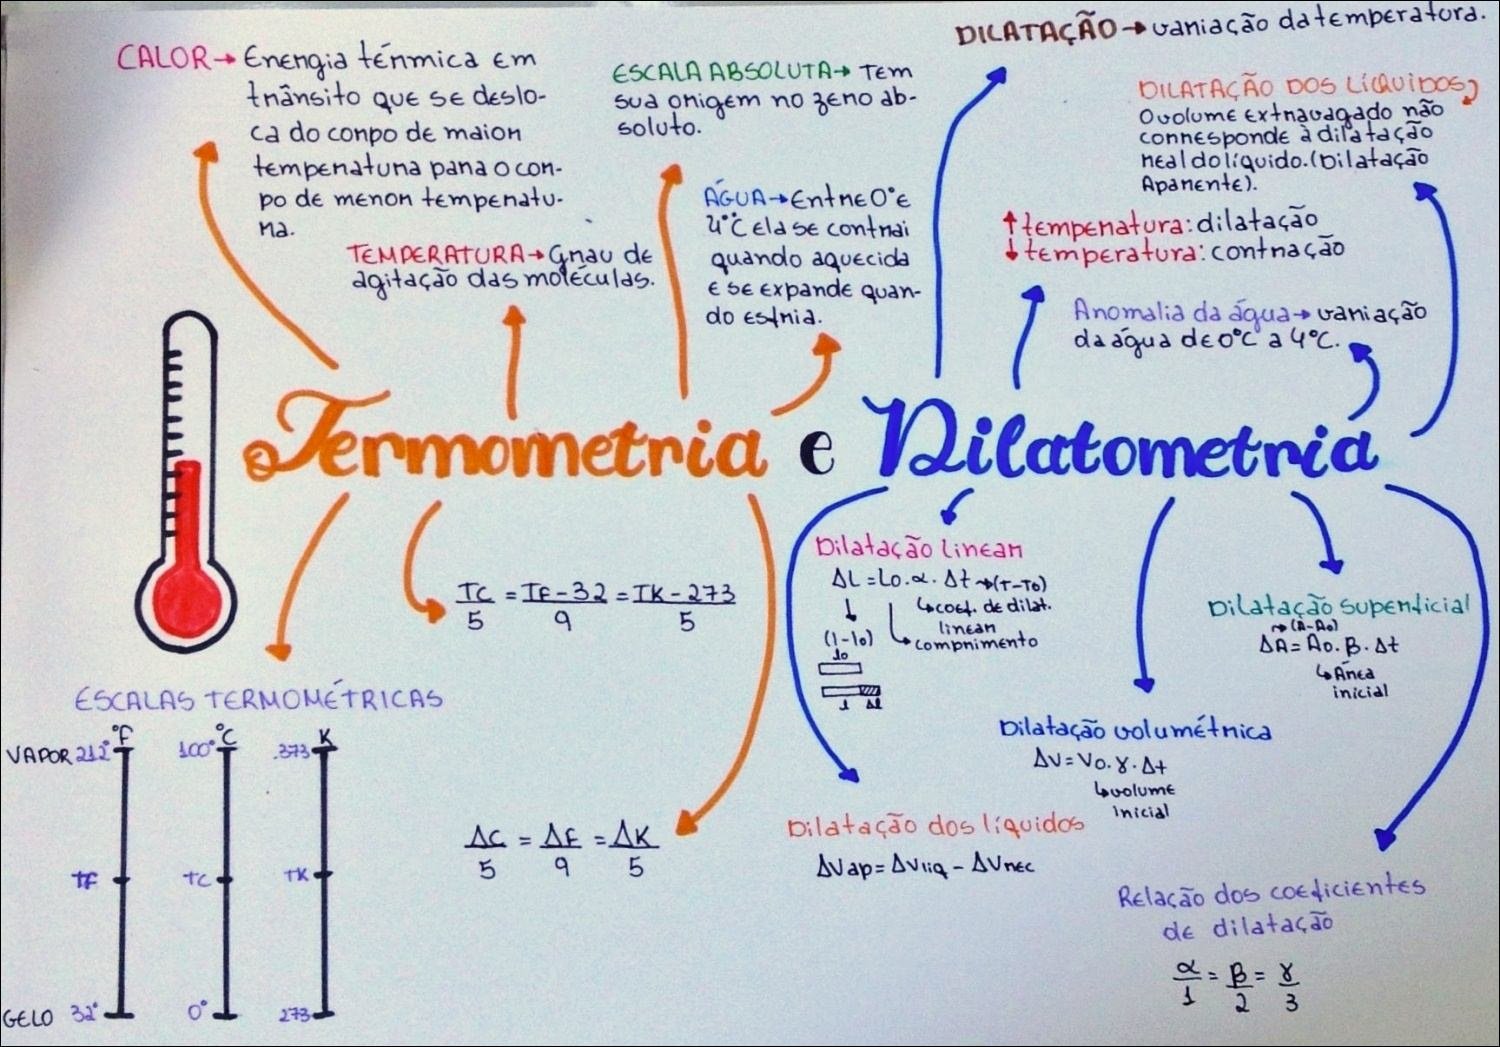 CALOR → Energia térmica em
trânsito que se deslo-
ca do corpo de maior
temperatura para o cor-
po de menor temperatu-
ra.
TEMPERATURA → Grau de
agitação das moléculas.
ESCALA ABSOLUTA → Tem
sua origem no zero ab-
soluto.
ÁGUA → Entre 0° e
4°C ela se contrai
quando aquecida
e se expande quan-
do esfria.
DILATAÇÃO → variação da temperatura.
DILATAÇÃO DOS LÍQUIDOS
O volume extravagado não
corresponde à dilatação
real do líquido. (Dilatação
Aparente).
↑ temperatura: dilatação
↓ temperatura: contração
Anomalia da água → variação
da água de 0°C a 4°C.
Termometria e Dilatometria
TC/5 = TF-32/9 = TK-273/5
ESCALAS TERMOMÉTRICAS
°F °C K
VAPOR 212° 100° 373
TF TC TK
GELO 32° 0° 273
ΔC/5 = ΔF/9 = ΔK/5
Dilatação linear
ΔL = Lo.α.Δt → (T-To)
↳ coef. de dilat.
linear
↳ comprimento
(l-lo)
lo
l Δl
Dilatação superficial
→ (A-Ao)
ΔA = Ao.β.Δt
↳ Área
inicial
Dilatação volumétrica
ΔV = Vo.γ.Δt
↳ volume
inicial
Dilatação dos líquidos
ΔVap = ΔVliq - ΔVrec
Relação dos coeficientes
de dilatação
α/1 = β/2 = γ/3